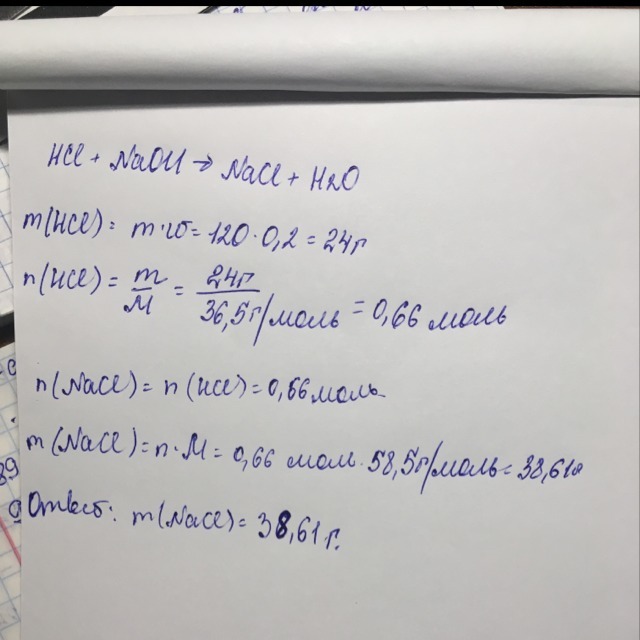 HCl + NaOH → NaCl + H2O
m(HCl) = m·ω = 120·0,2 = 24г
n(HCl) = m/M = 24г/36,5г/моль = 0,66 моль
n(NaCl) = n(HCl) = 0,66 моль
m(NaCl) = n·M = 0,66 моль·58,5г/моль = 38,61г
Ответ: m(NaCl) = 38,61 г.